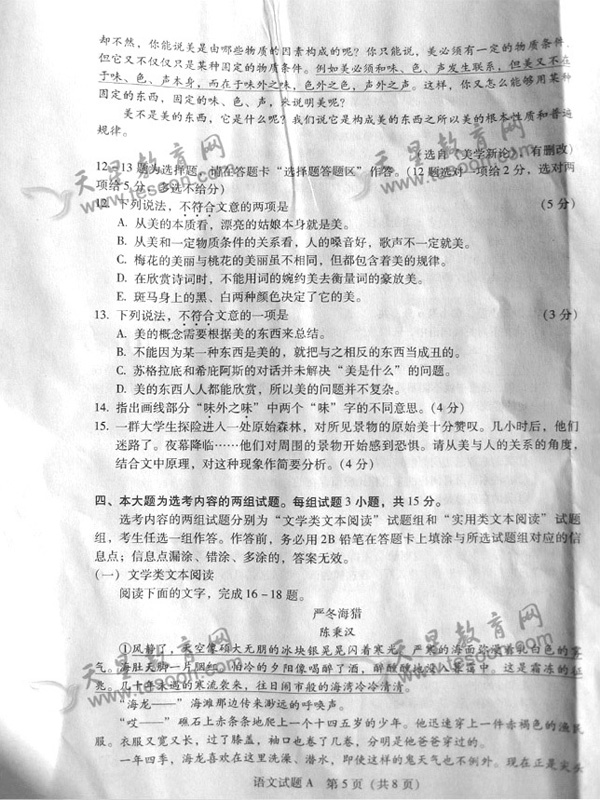 却不然，你能说美是由哪些物质的因素构成的呢？你只能说，美必须有一定的物质条件，
但它又不仅仅只是某种固定的物质条件。例如美必须和味、色、声发生联系，但美又不在
于味、色、声本身，而在于味外之味，色外之色，声外之声。这样，你又怎么能够用某种
固定的东西，固定的味、色、声，来说明美呢？
美不是美的东西，它是什么呢？我们说它是构成美的东西之所以美的根本性质和普遍
规律。
（选自《美学新论》，有删改）
12、13题为选择题，请在答题卡“选择题答题区”作答。（12题选对一项给2分，选对两
项给5分，多选不给分）
12. 下列说法，不符合文意的两项是 （5分）
A. 从美的本质看，漂亮的姑娘本身就是美。
B. 从美和一定物质条件的关系看，人的嗓音好，歌声不一定就美。
C. 梅花的美丽与桃花的美丽虽不相同，但都包含着美的规律。
D. 在欣赏诗词时，不能用词的婉约美去衡量词的豪放美。
E. 斑马身上的黑、白两种颜色决定了它的美。
13. 下列说法，不符合文意的一项是 （3分）
A. 美的概念需要根据美的东西来总结。
B. 不能因为某一种东西是美的，就把与之相反的东西当成丑的。
C. 苏格拉底和希庇阿斯的对话并未解决“美是什么”的问题。
D. 美的东西人人都能欣赏，所以美的问题并不复杂。
14. 指出画线部分“味外之味”中两个“味”字的不同意思。（4分）
15. 一群大学生探险进入一处原始森林，对所见景物的原始美十分赞叹。几小时后，他们
迷路了。夜幕降临……他们对周围的景物开始感到恐惧。请从美与人的关系的角度，
结合文中原理，对这种现象作简要分析。（4分）
四、本大题为选考内容的两组试题。每组试题3小题，共15分。
选考内容的两组试题分别为“文学类文本阅读”试题组和“实用类文本阅读”试题
组，考生任选一组作答。作答前，务必用2B铅笔在答题卡上填涂与所选试题组对应的信
息点；信息点漏涂、错涂、多涂的，答案无效。
（一）文学类文本阅读
阅读下面的文字，完成16－18题。
严冬海猎
陈秉汉
①风静了，天空像硕大无朋的冰块银晃晃闪着寒光。严寒的海面弥漫着乳白色的雾
气。海肚天脚一片胭红，怕冷的夕阳像喝醉了酒，醉醺醺地没入暮霭中。这是霜冻的征
兆。几十年未遇的寒流袭来，往日闹市般的海湾冷冷清清。
“海龙——”海滩那边传来渺远的呼唤声。
“哎——”礁石上赤条条地爬上一个十四五岁的少年。他迅速穿上一件赤褐色的渔民
服。衣服又宽又长，过了膝盖，袖口也卷了几卷，分明是他爸爸穿过的。
一年四季，海龙喜欢在这里洗澡、潜水，即使这样的鬼天气也不例外。现在正是尖头
语文试题A 第5页（共8页）
天星教育网
tesoon.com
天星教育网
tesoon.com
天星教育网
tesoon.com
天星教育网
tesoon.com